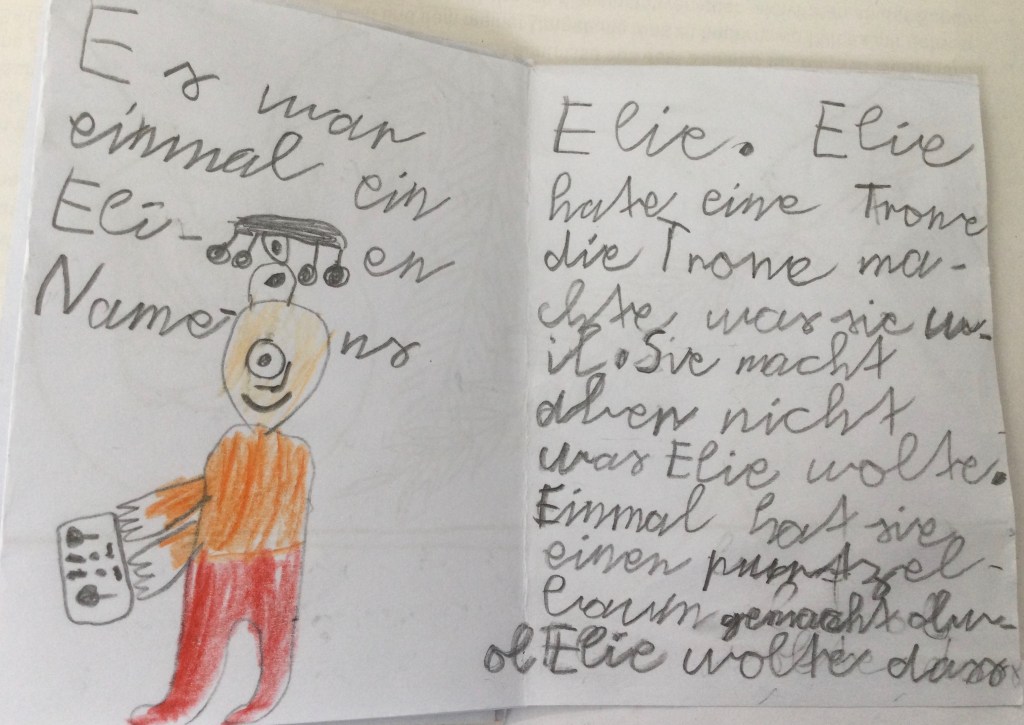 Es war
einmal ein
Eli-en
Name-ns
Elie. Elie
hate eine Trone
die Trone ma-
chte was sie w-
il. Sie macht
aber nicht
was Elie wolte.
Einmal hat sie
einen purtzel-
baum gemacht obw-
ol Elie wolte dass